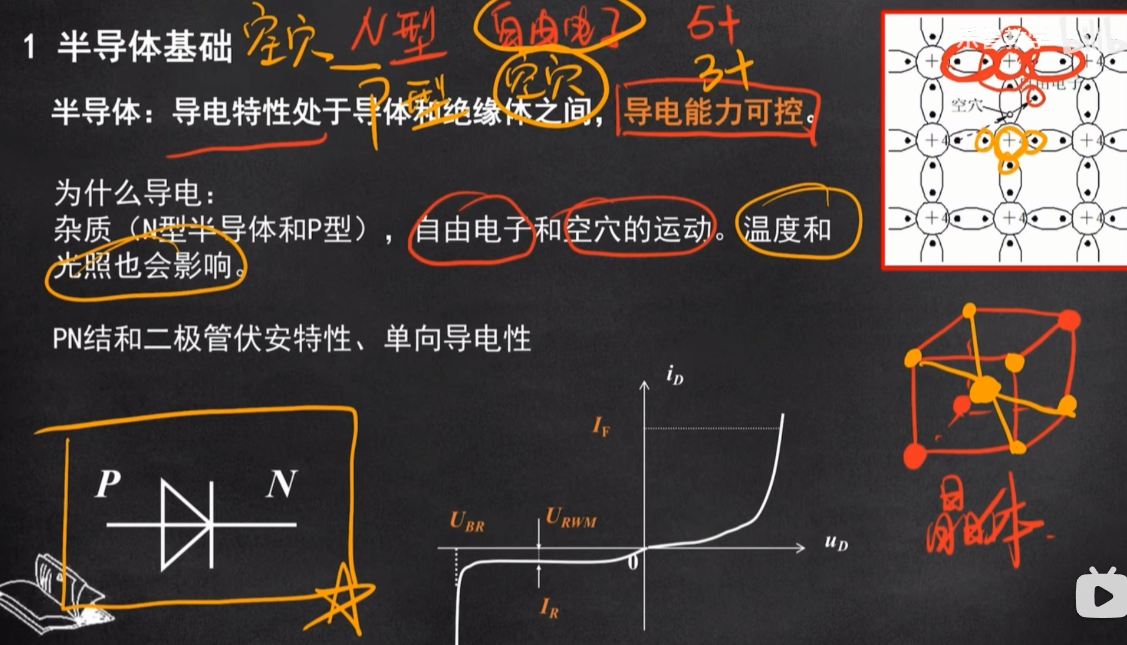 1 半导体基础 空穴 N型 自由电子 5+
P型 空穴 3+
半导体：导电特性处于导体和绝缘体之间，导电能力可控。
为什么导电：
杂质（N型半导体和P型），自由电子和空穴的运动。温度和
光照也会影响。
PN结和二极管伏安特性、单向导电性
P N
i_D
I_F
U_BR U_RWM
0 u_D
I_R
自由电子
空穴
+4 +4
+4 +4 +4
晶体
bilibili